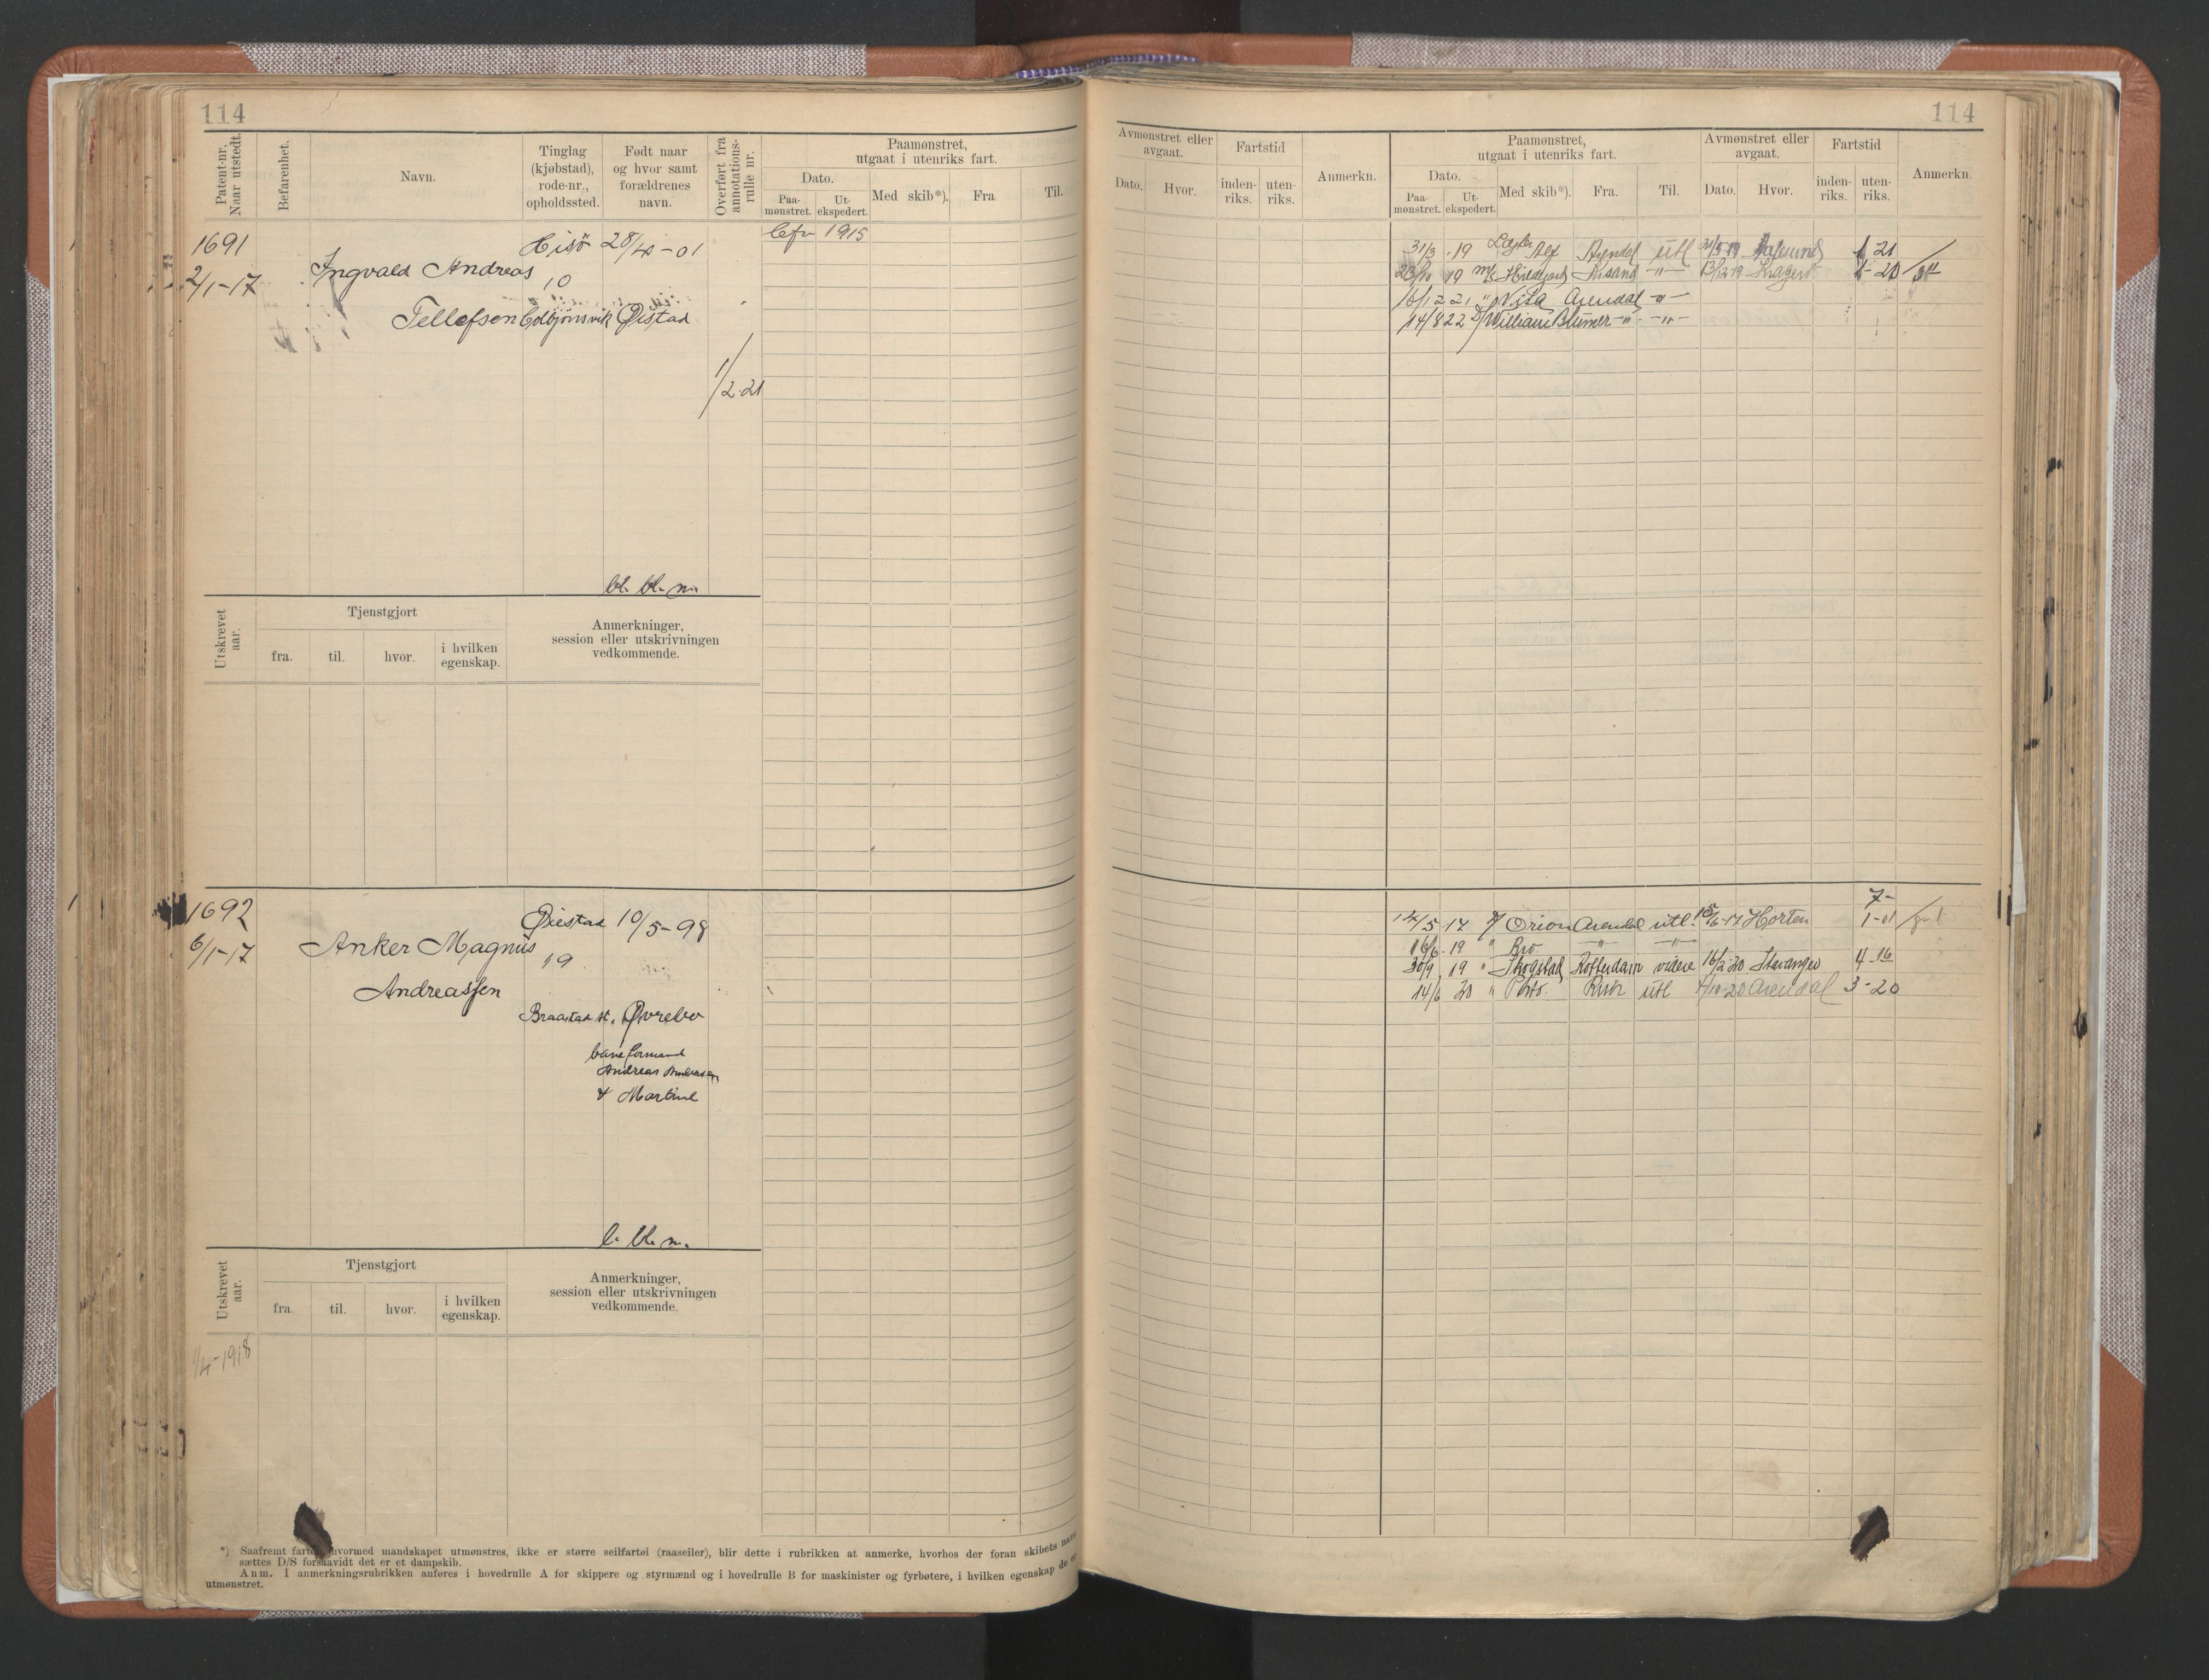 114
114
Patent-nr. Naar utstedt.
Befarenhet.
Navn.
Tinglag (kjøbstad), rode-nr., opholdssted.
Født naar og hvor samt forældrenes navn.
Overført fra annotations-rulle nr.
Paamønstret, utgaat i utenriks fart.
Dato.
Paa-mønstret.
Ut-ekspedert.
Med skib*).
Fra
Til.
Avmønstret eller avgaat.
Dato.
Hvor.
Fartstid
inden-riks.
uten-riks.
Anmerkn.
Paamønstret, utgaat i utenriks fart.
Dato.
Paa-mønstret.
Ut-ekspedert.
Med skib*).
Fra.
Til.
Avmønstret eller avgaat.
Dato.
Hvor.
Fartstid
inden-riks.
uten-riks.
Anmerkn.
1691
2/1-17
Ingvald Andreas
Tellefsen
Hisö
10
Colbjønsvik
Øistad
1/2-21
1915
31/3 19 Alf Arendal utl
23/10 19 Kisand -"-
16/12 21 " Vita Arendal -"-
14/8 22 D/ William Blumer -"- -"-
Utskrevet aar.
Tjenstgjort
fra.
til.
hvor.
i hvilken egenskap.
Anmerkninger, session eller utskrivningen vedkommende.
1692
6/1-17
Anker Magnus
Andreassen
Øiestad
19
Braastad st.
10/5-98
Øvrebo
baneformand
Andreas Andersen
& Martine
14/5 17 Orion Arendal utl. Horten
7-
16/6 19 " Rio -"- -"-
30/9 19 " Skogstad Rotterdam videre 16/2-20 Stavanger 4-16
14/6 20 " Porto utl Arendal 3-20
Utskrevet aar.
Tjenstgjort
fra.
til.
hvor.
i hvilken egenskap.
Anmerkninger, session eller utskrivningen vedkommende.
1/4-1918
*) Saafremt hvormed mandskapet utmønstres, ikke er større seilfartøi (raaseiler), blir dette i rubrikken at anmerke, hvorhos der foran skibets navn
sættes D/S forsaavidt det er et dampskib.
Anm. I anmerkningsrubrikken anføres i hovedrulle A for skippere og styrmænd og i hovedrulle B for maskinister og fyrbøtere, i hvilken egenskap de er
utmønstret.